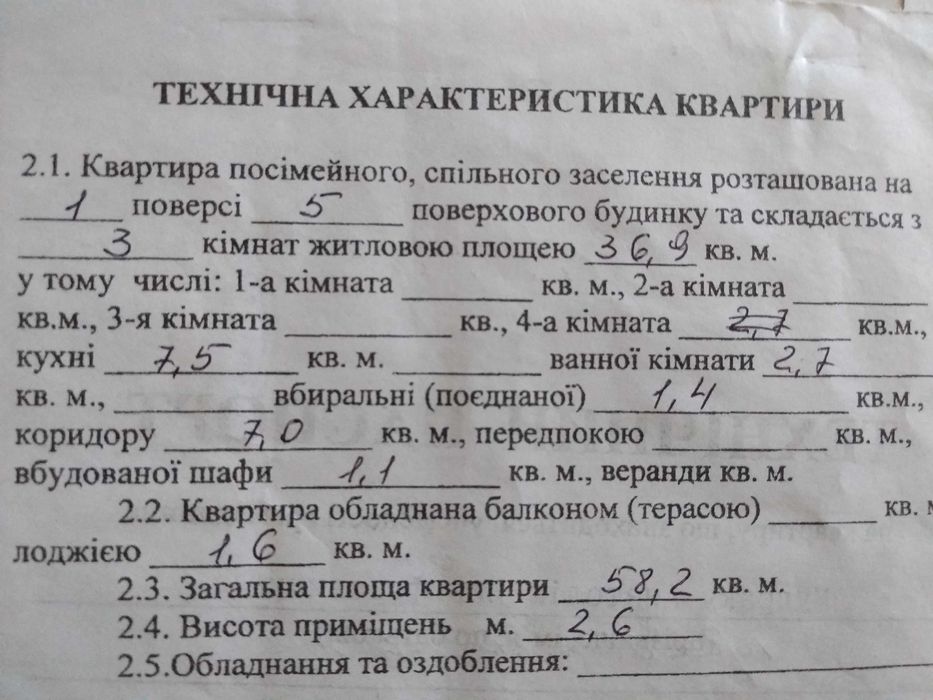 ТЕХНІЧНА ХАРАКТЕРИСТИКА КВАРТИРИ
2.1. Квартира посімейного, спільного заселення розташована на
1 поверсі 5 поверхового будинку та складається з
3 кімнат житловою площею 36,9 кв. м.
у тому числі: 1-а кімната ______ кв. м., 2-а кімната ______
кв.м., 3-я кімната ______ кв., 4-а кімната 2,7 кв.м.,
кухні 7,5 кв. м. ______ ванної кімнати 2,7
кв. м., ______ вбиральні (поєднаної) 1,4 кв.м.,
коридору 7,0 кв. м., передпокою ______ кв. м.,
вбудованої шафи 1,1 кв. м., веранди кв. м.
2.2. Квартира обладнана балконом (терасою) ______ кв.
лоджією 1,6 кв. м.
2.3. Загальна площа квартири 58,2 кв. м.
2.4. Висота приміщень м. 2,6
2.5.Обладнання та оздоблення: ______